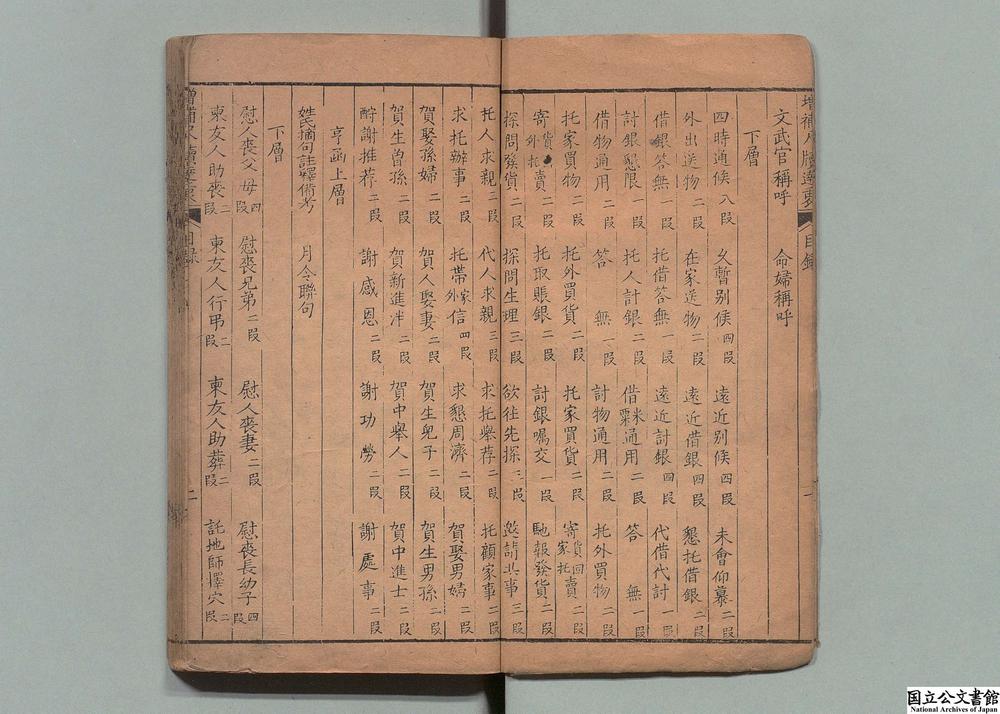 文武官稱呼 命婦稱呼
下層
四時通候 八段 久暫别候 四段 遠近别候 四段 未會仰慕 二段
外出送物 二段 在家送物 二段 遠近借銀 四段 懇托借銀 二段
借銀答無 一段 托借答無 一段 遠近討銀 四段 代借代討 一段
討銀懇限 一段 托人討銀 二段 借米粟通用 二段 答無 一段
借物通用 二段 答無 一段 討物通用 二段 托外買物 二段
托家買物 二段 托外買貨 二段 托家買貨 二段 寄貨回家托賣 二段
寄貨外托賣 二段 托取賬銀 二段 討銀囑交 一段 馳報發貨 二段
探問發貨 二段 探問生理 三段 欲往先探 三段 邀請共事 三段
托人求親 二段 代人求親 三段 求托舉荐 二段 托顧家事 二段
求托辦事 二段 托帶家外信 四段 求懇周濟 二段 賀娶男婦 二段
賀娶孫婦 二段 賀人娶妻 二段 賀生兒子 二段 賀生男孫 二段
賀生曾孫 二段 賀新進泮 二段 賀中舉人 二段 賀中進士 二段
酧謝推荐 二段 謝感恩 二段 謝功勞 二段 謝處事 二段
亨函上層
姓氏摘句註釋備考 月令聯句
下層
慰人喪父母 四段 慰喪兄弟 二段 慰人喪妻 二段 慰喪長幼子 四段
柬友人助喪 二段 柬友人行弔 二段 柬友人助葬 二段 託地師擇穴 二段
目錄
二
国立公文書館
National Archives of Japan